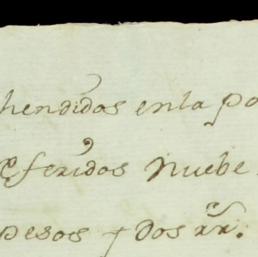 hendidos enla po
eferidos Nuebe
pesos y Dos rr.